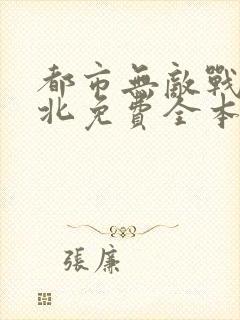 都市無敵戰
北免費全本
張廉